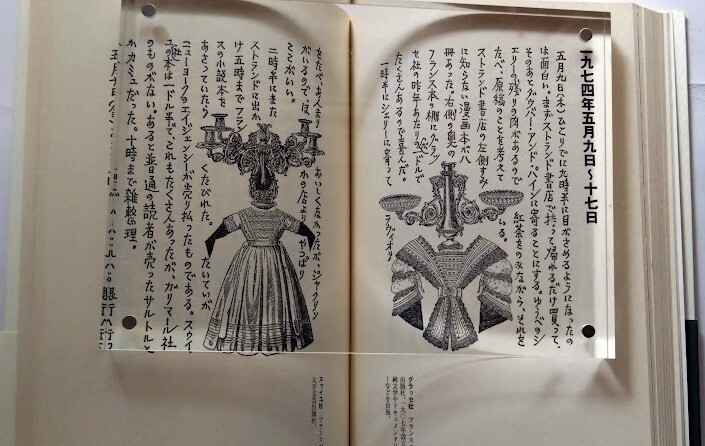 一九七四年五月九日~十七日
五月九日(木)ひとりでに九時半に目がさめるようになったの
は面白い。まずストランド書店で持って帰れるだけ買って、
そのあとダウバー・アンド・パインに寄ることにする。ゆうべのシ
エリーの残りの肉があるので 紅茶をのみながら、それを
たべ、原稿のことを考えて いる。
ストランド書店の左側すみ
に知らない漫画本が八
冊あった。右側の奥の
フランス本棚にグラッ
セ社の昨年あたりのが一ドルで
たくさんあるので喜んだ。
一時半にシェリーに寄って ラヴィオリ
をたべ、あんまり おいしくなかったが、ジャクリン
がいるのでほ かの店より やっぱり
ここがいい。
二時半にまた
ストランドに出か
け五時までフラン
スの小説本を
あさっていたら くたびれた。 たいていが、
ニューヨークのエイジェンシーが売り払ったものである。スウィ
ユ社の本は一ドル半で、これもたくさんあったが、ガリマール社
のものがない。あると普通の読者が売ったサルトルと
かカミュだった。十時まで雑談整理。
五月十日
グラッセ社 フランス
出版社。一九〇七年設立
純文学やドキュメンタリ
ーなどを出版。
スウィユ社 フランス
大手文芸出版社。